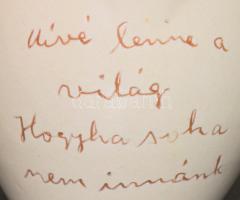 Mivé lenne a
világ
Hogyha soha
nem innánk